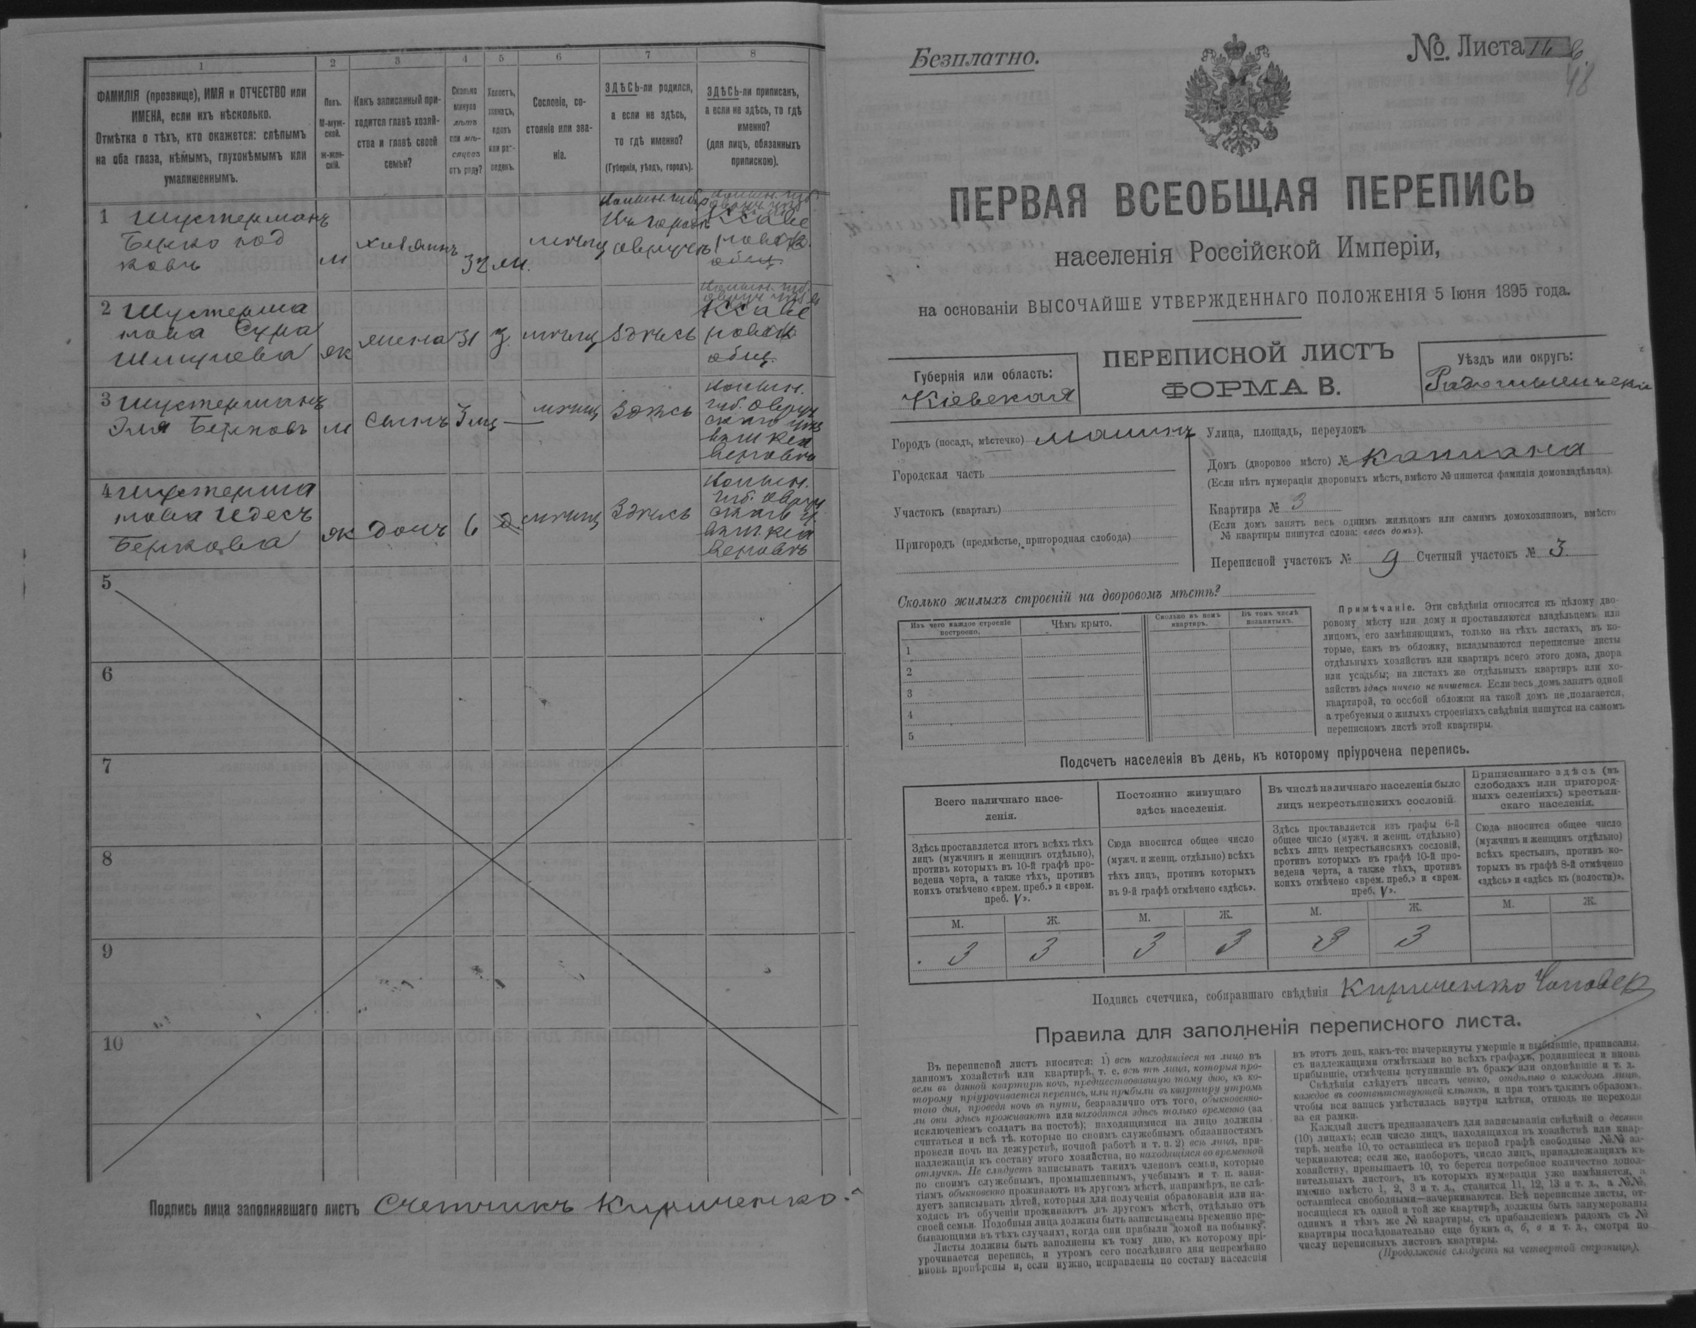 1
2
3
4
5
6
7
8
ФАМИЛІЯ (прозвище), ИМЯ и ОТЧЕСТВО или
ИМЕНА, если ихъ нѣсколько.
Отмѣтка о тѣхъ, кто окажется: слѣпымъ
на оба глаза, нѣмымъ, глухонѣмымъ или
умалишеннымъ.
Полъ.
М-муж-
ской.
ж-жен-
скій.
Какъ записанный при-
ходится главѣ хозяй-
ства и главѣ своей
семьи?
Сколько
минуло
лѣтъ
или мѣ-
сяцевъ
отъ роду?
Холостъ,
женатъ,
вдовъ
или раз-
веденъ.
Сословіе, со-
стояніе или зва-
ніе.
ЗДѢСЬ-ли родился,
а если не здѣсь,
то гдѣ именно?
(Губернія, уѣздъ, городъ).
ЗДѢСЬ-ли приписанъ,
а если не здѣсь, то гдѣ
именно?
(для лицъ, обязанныхъ
припискою).
1 Шустерманъ
Берко
м
хозяинъ
32
овручъ
2 Шустерма
нова Сура
Шмулева
ж
жена
31
з
здѣсь
общ.
3 Шустерманъ
Эля Берковъ
м
сынъ
3 мц
—
здѣсь
4 Шустерма
нова Идесъ
Беркова
ж
дочь
6
здѣсь
5
6
7
8
9
10
Подпись лица заполнявшаго листъ Счетчикъ Кириченко
Безплатно.
№ Листа
48
ПЕРВАЯ ВСЕОБЩАЯ ПЕРЕПИСЬ
населенія Россійской Имперіи,
на основаніи ВЫСОЧАЙШЕ УТВЕРЖДЕННАГО ПОЛОЖЕНІЯ 5 Іюня 1895 года.
ПЕРЕПИСНОЙ ЛИСТЪ
ФОРМА В.
Губернія или область:
Кіевская
Уѣздъ или округъ:
Городъ (посадъ, мѣстечко) Малинъ
Городская часть
Участокъ (кварталъ)
Пригородъ (предмѣстье, пригородная слобода)
Улица, площадь, переулокъ
Домъ (дворовое мѣсто) № Каплана
(Если нѣтъ нумераціи дворовыхъ мѣстъ, вмѣсто № пишется фамилія домовладѣльца).
Квартира № 3
(Если домъ занятъ весь однимъ жильцомъ или самимъ домохозяиномъ, вмѣсто
№ квартиры пишутся слова: «весь домъ»).
Переписной участокъ № 9 Счетный участокъ № 3.
Сколько жилыхъ строеній на дворовомъ мѣстѣ?
Изъ чего каждое строеніе
построено.
Чѣмъ крыто.
Сколько въ немъ
квартиръ.
Въ томъ числѣ
незанятыхъ.
1
2
3
4
5
Примѣчаніе. Эти свѣдѣнія относятся къ цѣлому дво-
ровому мѣсту или дому и проставляются владѣльцемъ или
лицомъ, его замѣняющимъ, только на тѣхъ листахъ, въ ко-
торые, какъ въ обложку, вкладываются переписные листы
отдѣльныхъ хозяйствъ или квартиръ всего этого дома, двора
или усадьбы; на листахъ же отдѣльныхъ квартиръ или хо-
зяйствъ здѣсь ничего не пишется. Если весь домъ занятъ одной
квартирой, то особой обложки на такой домъ не полагается,
а требуемыя о жилыхъ строеніяхъ свѣдѣнія пишутся на самомъ
переписномъ листѣ этой квартиры.
Подсчетъ населенія въ день, къ которому пріурочена перепись.
Всего наличнаго насе-
ленія.
Постоянно живущаго
здѣсь населенія.
Въ числѣ наличнаго населенія было
лицъ некрестьянскихъ сословій.
Приписаннаго здѣсь (въ
слободахъ или пригород-
ныхъ селеніяхъ) крестьян-
скаго населенія.
Здѣсь проставляется итогъ всѣхъ тѣхъ
лицъ (мужчинъ и женщинъ отдѣльно),
противъ которыхъ въ 10-й графѣ про-
ведена черта, а также тѣхъ, противъ
коихъ отмѣчено «врем. преб.» и «врем.
преб. V».
Сюда вносится общее число
(мужч. и женщ. отдѣльно) всѣхъ
тѣхъ лицъ, противъ которыхъ
въ 9-й графѣ отмѣчено «здѣсь».
Здѣсь проставляется изъ графы 6-й
общее число (мужч. и женщ. отдѣльно)
всѣхъ лицъ некрестьянскихъ сословій,
противъ которыхъ въ графѣ 10-й про-
ведена черта, а также тѣхъ, противъ
коихъ отмѣчено «врем. преб.» и «врем.
преб. V».
Сюда вносится общее число
(мужчинъ и женщинъ отдѣльно)
всѣхъ крестьянъ, противъ ко-
торыхъ въ графѣ 8-й отмѣчено
«здѣсь» и «здѣсь къ (волости)».
М. Ж. М. Ж. М. Ж. М. Ж.
3 3 3 3 3 3
Подпись счетчика, собиравшаго свѣдѣнія Кириченко
Правила для заполненія переписного листа.
Въ переписной листъ вносятся: 1) всѣ находящіеся на лицо въ
данномъ хозяйствѣ или квартирѣ, т. е. всѣ тѣ лица, которыя про-
вели въ данной квартирѣ ночь, предшествовавшую тому дню, къ ко-
торому пріурочивается перепись, или прибыли въ квартиру утромъ
того дня, проведя ночь въ пути, безразлично отъ того, обыкновенно-
ли они здѣсь проживаютъ или находятся здѣсь только временно (за
исключеніемъ солдатъ на постоѣ); находящимися на лицо должны
считаться и всѣ тѣ, которые по своимъ служебнымъ обязанностямъ
провели ночь на дежурствѣ, ночной работѣ и т. п. 2) всѣ лица, при-
надлежащія къ составу этого хозяйства, но находящіяся во временной
отлучкѣ. Не слѣдуетъ записывать такихъ членовъ семьи, которые
по своимъ служебнымъ, промышленнымъ, учебнымъ и т. п. заня-
тіямъ обыкновенно проживаютъ въ другомъ мѣстѣ, напримѣръ, не слѣ-
дуетъ записывать дѣтей, которыя для полученія образованія или на-
ходясь въ обученіи проживаютъ въ другомъ мѣстѣ, отдѣльно отъ
своей семьи. Подобныя лица должны быть записываемы временно пре-
бывающими въ тѣхъ случаяхъ, когда они прибыли домой на побывку.
Листы должны быть заполнены къ тому дню, къ которому прі-
урочивается перепись, и утромъ сего послѣдняго дня непремѣнно
вновь провѣрены и, если нужно, исправлены по составу населенія
въ этотъ день, какъ-то: вычеркнуты умершіе и выбывшіе, приписаны,
съ надлежащими отмѣтками во всѣхъ графахъ, родившіеся и вновь
прибывшіе, отмѣчены вступившіе въ бракъ или овдовѣвшіе и т. д.
Свѣдѣнія слѣдуетъ писать четко, отдѣльно о каждомъ лицѣ,
каждое въ соотвѣтствующей клѣткѣ, и при томъ такимъ образомъ,
чтобы вся запись умѣстилась внутри клѣтки, отнюдь не переходя
за ея рамки.
Каждый листъ предназначенъ для записыванія свѣдѣній о десяти
(10) лицахъ; если число лицъ, находящихся въ хозяйствѣ или квар-
тирѣ, менѣе 10, то оставшіеся въ первой графѣ свободные №№ за-
черкиваются; если же, наоборотъ, число лицъ, принадлежащихъ къ
хозяйству, превышаетъ 10, то берется потребное количество допол-
нительныхъ листовъ, въ которыхъ нумерація уже измѣняется, а
именно вмѣсто 1, 2, 3 и т. д., ставится 11, 12, 13 и т. д., а №№,
оставшіеся свободными—зачеркиваются. Всѣ переписные листы, от-
носящіеся къ одной и той же квартирѣ, должны быть занумерованы
однимъ и тѣмъ же № квартиры, съ прибавленіемъ рядомъ съ №
квартиры послѣдовательно еще буквъ а, б, в и т. д., смотря по
числу переписныхъ листовъ квартиры.
(Продолженіе слѣдуетъ на четвертой страницѣ).